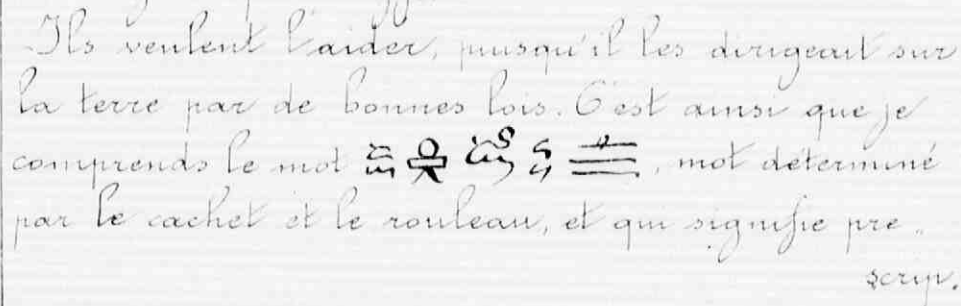 Ils veulent l'aider, puisqu'il les dirigeait sur
la terre par de bonnes lois. C'est ainsi que je
comprends le mot , mot déterminé
par le cachet et le rouleau, et qui signifie pre-
scrip.